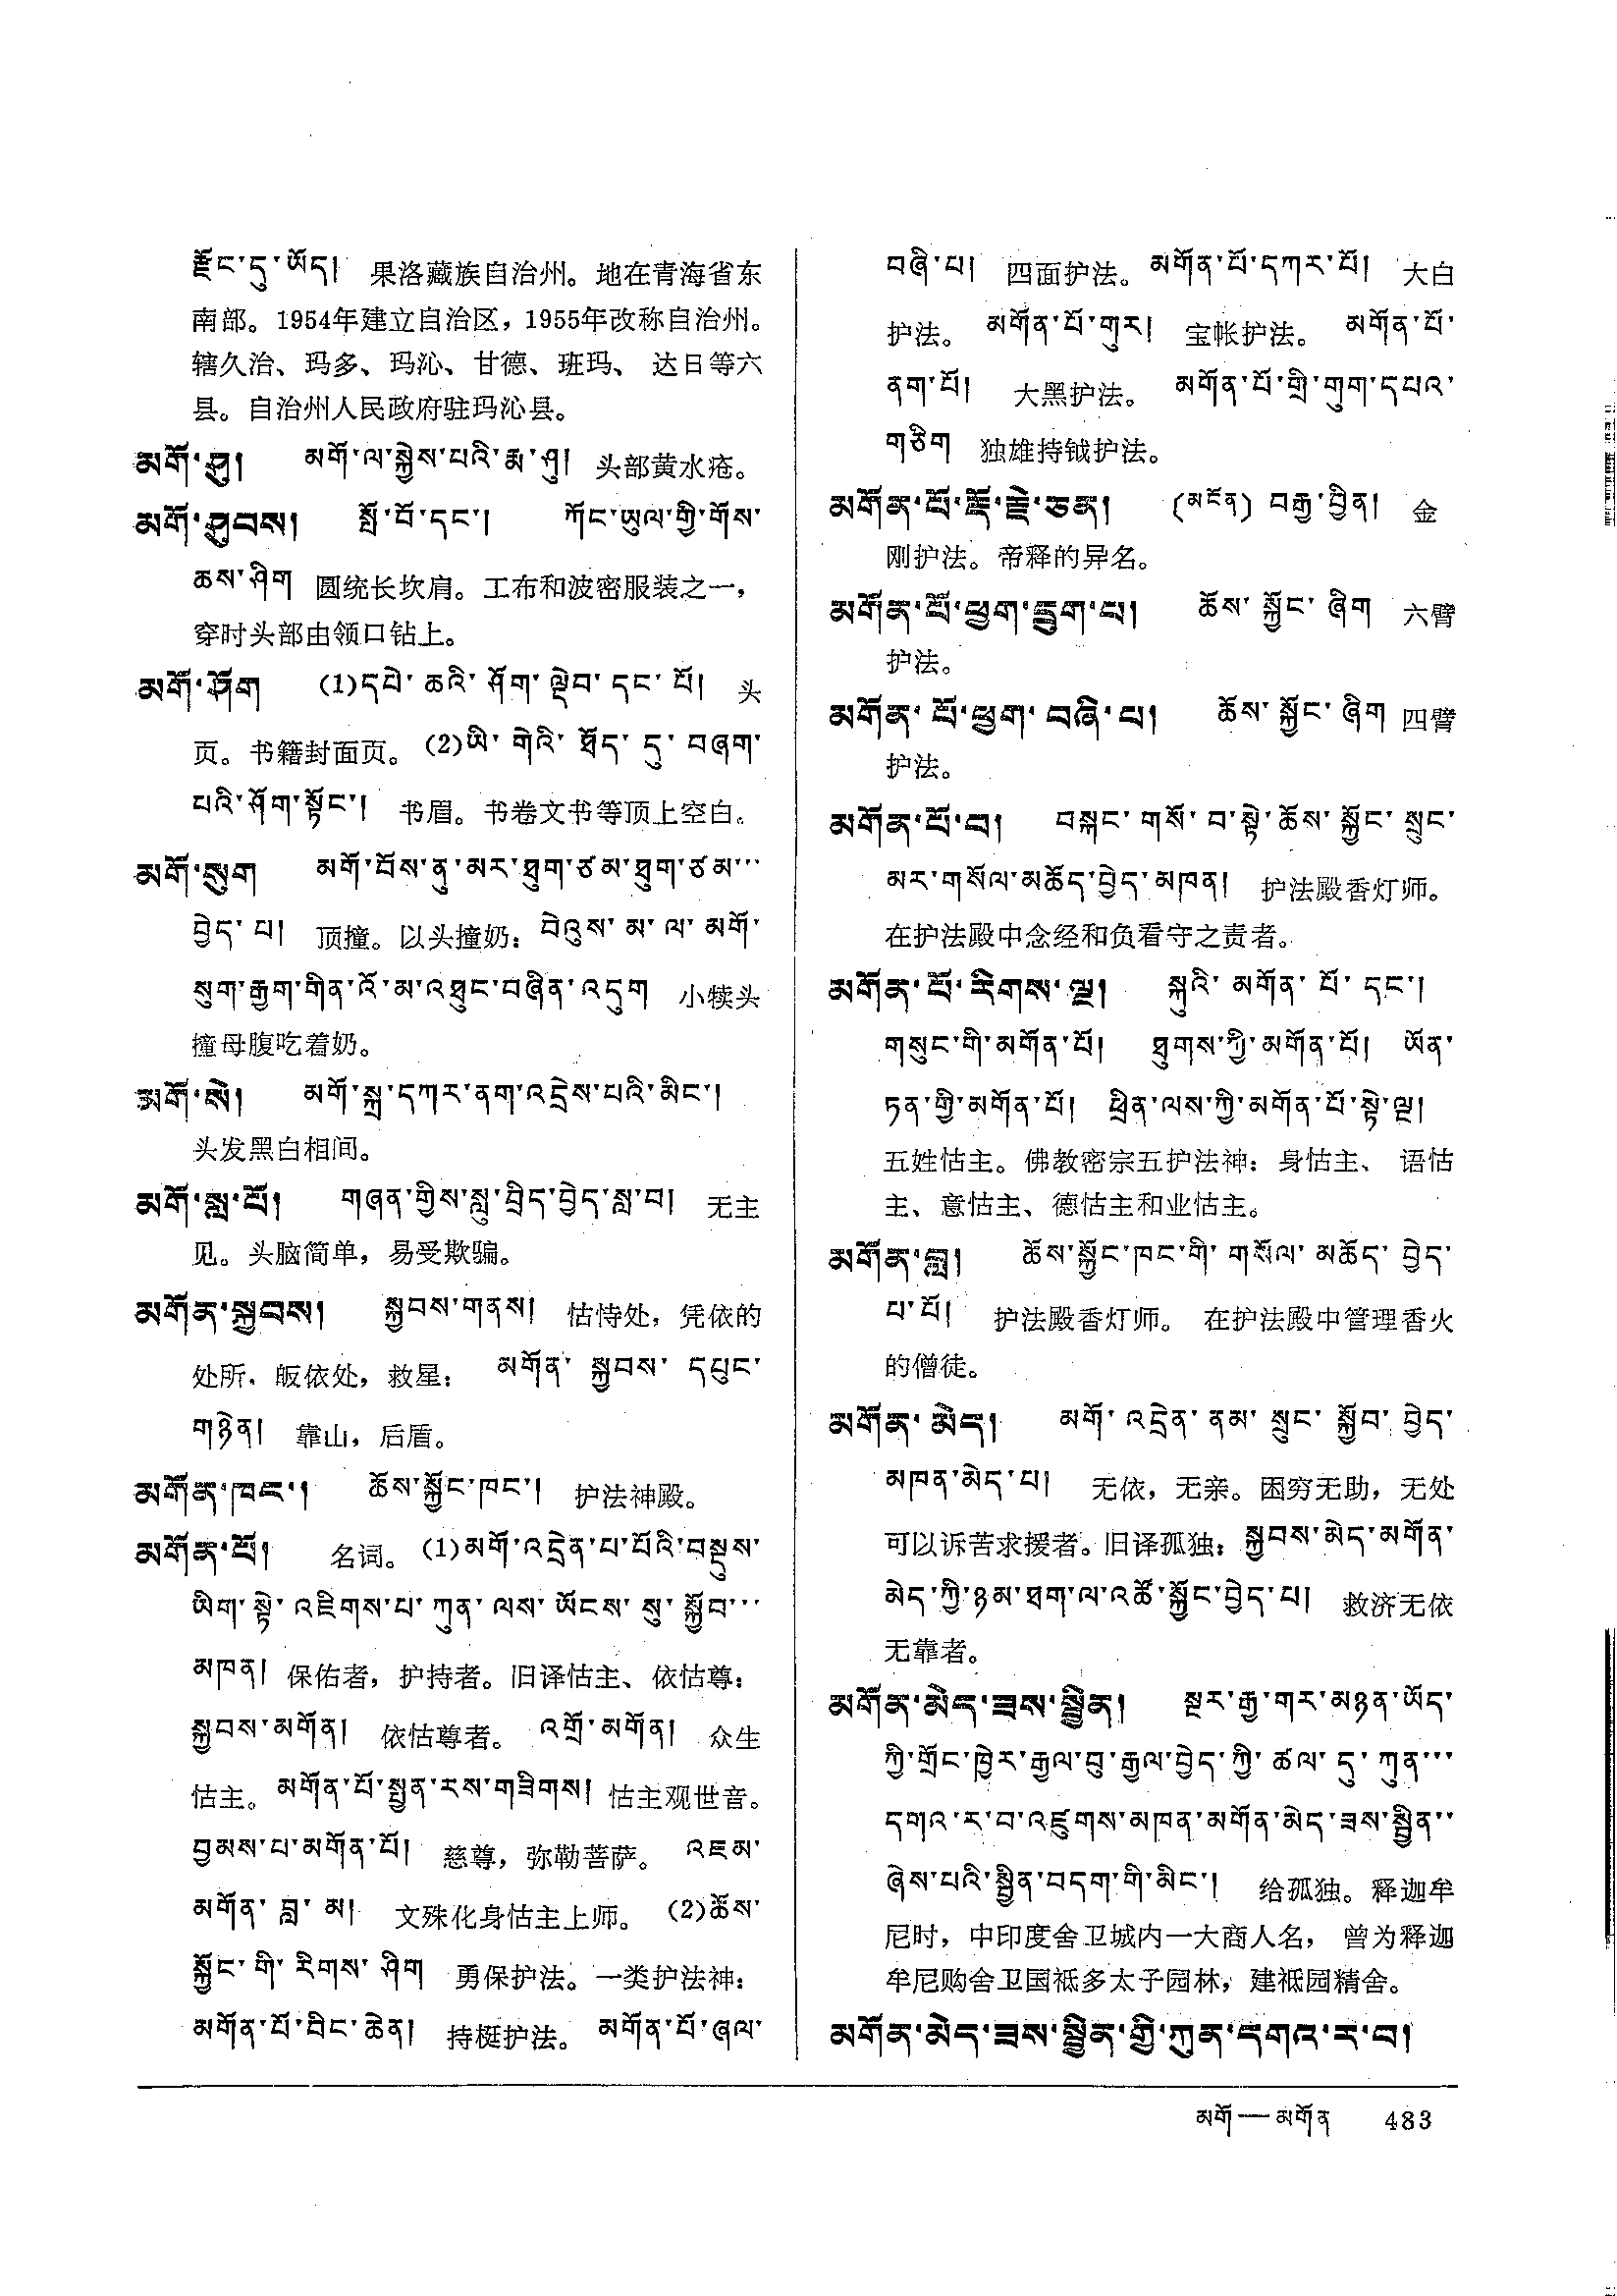 རྫོང་དུ་ཡོད། 果洛藏族自治州。地在青海省东
南部。1954年建立自治区，1955年改称自治州。
辖久治、玛多、玛沁、甘德、班玛、达日等六
县。自治州人民政府驻玛沁县。
མགོ་ཤུ། མགོ་ལ་སྐྱེས་པའི་རྨ་ཤུ། 头部黄水疮。
མགོ་ཤུབས། སྤོ་བོ་དང་། ཀོང་ཡུལ་གྱི་གོས་
ཆས་ཤིག 圆统长坎肩。工布和波密服装之一，
穿时头部由领口钻上。
མགོ་ཤོག (1)དཔེ་ཆའི་ཤོག་ལྡེབ་དང་པོ། 头
页。书籍封面页。(2)ཡི་གེའི་ཐོད་དུ་བཞག་
པའི་ཤོག་སྟོང་། 书眉。书卷文书等顶上空白。
མགོ་སུག མགོ་བོས་ནུ་མར་ཐུག་ཙམ་ཐུག་ཙམ་་་
བྱེད་པ། 顶撞。以头撞奶：བེའུས་མ་ལ་མགོ་
སུག་རྒྱག་གིན་འོ་མ་འཐུང་བཞིན་འདུག 小犊头
撞母腹吃着奶。
མགོ་སེ། མགོ་སྐྲ་དཀར་ནག་འདྲེས་པའི་མིང་།
头发黑白相间。
མགོ་སླ་པོ། གཞན་གྱིས་སླུ་བྲིད་བྱེད་སླ་བ། 无主
见。头脑简单，易受欺骗。
མགོན་སྐྱབས། སྐྱབས་གནས། 怙恃处，凭依的
处所，皈依处，救星： མགོན་སྐྱབས་དཔུང་
གཉེན། 靠山，后盾。
མགོན་ཁང་། ཆོས་སྐྱོང་ཁང་། 护法神殿。
མགོན་པོ། 名词。(1)མགོ་འདྲེན་པ་པོའི་བསྡུས་
ཡིག་སྟེ་འཇིགས་པ་ཀུན་ལས་ཡོངས་སུ་སྐྱོབ་་་
མཁན། 保佑者，护持者。旧译怙主、依怙尊：
སྐྱབས་མགོན། 依怙尊者。 འགྲོ་མགོན། 众生
怙主。མགོན་པོ་སྤྱན་རས་གཟིགས། 怙主观世音。
བྱམས་པ་མགོན་པོ། 慈尊，弥勒菩萨。 འཇམ་
མགོན་བླ་མ། 文殊化身怙主上师。 (2)ཆོས་
སྐྱོང་གི་རིགས་ཤིག 勇保护法。一类护法神：
མགོན་པོ་བིང་ཆེན། 持梃护法。 མགོན་པོ་ཞལ་
བཞི་པ། 四面护法。མགོན་པོ་དཀར་པོ། 大白
护法。 མགོན་པོ་གུར། 宝帐护法。 མགོན་པོ་
ནག་པོ། 大黑护法。 མགོན་པོ་གྲི་གུག་དཔའ་
གཅིག 独雄持钺护法。
མགོན་པོ་རྡོ་རྗེ་ཅན། (མངོན) བརྒྱ་བྱིན། 金
刚护法。帝释的异名。
མགོན་པོ་ཕྱག་དྲུག་པ། ཆོས་སྐྱོང་ཞིག 六臂
护法。
མགོན་པོ་ཕྱག་བཞི་པ། ཆོས་སྐྱོང་ཞིག 四臂
护法。
མགོན་པོ་བ། བསྐང་གསོ་བ་སྟེ་ཆོས་སྐྱོང་སྲུང་
མར་གསོལ་མཆོད་བྱེད་མཁན། 护法殿香灯师。
在护法殿中念经和负看守之责者。
མགོན་པོ་རིགས་ལྔ། སྐུའི་མགོན་པོ་དང་།
གསུང་གི་མགོན་པོ། ཐུགས་ཀྱི་མགོན་པོ། ཡོན་
ཏན་གྱི་མགོན་པོ། ཕྲིན་ལས་ཀྱི་མགོན་པོ་སྟེ་ལྔ།
五姓怙主。佛教密宗五护法神：身怙主、语怙
主、意怙主、德怙主和业怙主。
མགོན་བླ། ཆོས་སྐྱོང་ཁང་གི་གསོལ་མཆོད་བྱེད་
པ་པོ། 护法殿香灯师。在护法殿中管理香火
的僧徒。
མགོན་མེད། མགོ་འདྲེན་ནམ་སྲུང་སྐྱོབ་བྱེད་
མཁན་མེད་པ། 无依，无亲。困穷无助，无处
可以诉苦求援者。旧译孤独：སྐྱབས་མེད་མགོན་
མེད་ཀྱི་ཉམ་ཐག་ལ་འཚོ་སྐྱོང་བྱེད་པ། 救济无依
无靠者。
མགོན་མེད་ཟས་སྦྱིན། སྔར་རྒྱ་གར་མཉན་ཡོད་
ཀྱི་གྲོང་ཁྱེར་རྒྱལ་བུ་རྒྱལ་བྱེད་ཀྱི་ཚལ་དུ་ཀུན་་་
དགའ་ར་བ་འཛུགས་མཁན་མགོན་མེད་ཟས་སྦྱིན་་
ཞེས་པའི་སྦྱིན་བདག་གི་མིང་། 给孤独。释迦牟
尼时，中印度舍卫城内一大商人名，曾为释迦
牟尼购舍卫国祗多太子园林，建祗园精舍。
མགོན་མེད་ཟས་སྦྱིན་གྱི་ཀུན་དགའ་ར་བ།
མགོ—མགོན 483